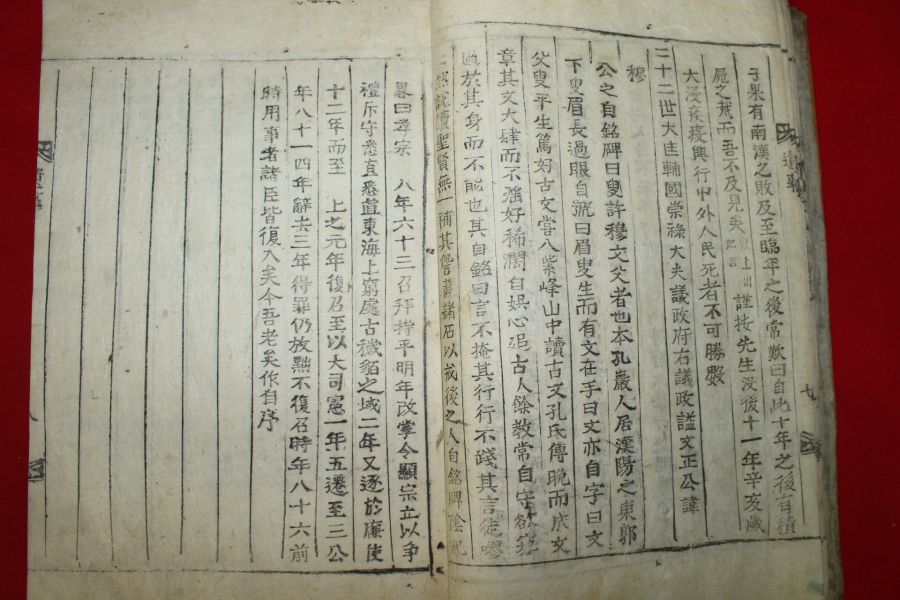 子果有南漢之敗及至臨年之後常歎曰自此十年之後有積
屍之而吾不及見矣以上出記言謹按先生沒後十一年辛亥歲
大浸疫興行中外人民死者不可勝數
二十二世大匡輔國崇祿大夫議政府右議政謚文正公諱
穆
公之自銘碑曰叟許穆文父者也本孔巖人居漢陽之東郭
下叟眉長過眼自號曰眉叟生而有文在手曰文亦自字曰文
父叟平生篤好古文嘗入紫峰山中讀古文孔氏傳晚而成文
章其文大肆而不淫好稀濶自娛心追古人餘敎常自守欲寡
過於其身而不能也其自銘曰言不掩其行行不踐其言徒嘐
然說讀聖賢無一補其諐書諸石以戒後之人自銘碑陰記
畧曰孝宗 八年六十三召拜持平明年改掌令顯宗立以爭
禮斥守悉直悉直東海上窮處古穢貊之域二年又逐於廉使
十二年而至 上之元年復召至以大司憲一年五遷至三公
年八十一四年辭去三年得罪仍放黜不復召時年八十六前
時用事者諸臣皆復入矣今吾老矣作自序
七
八